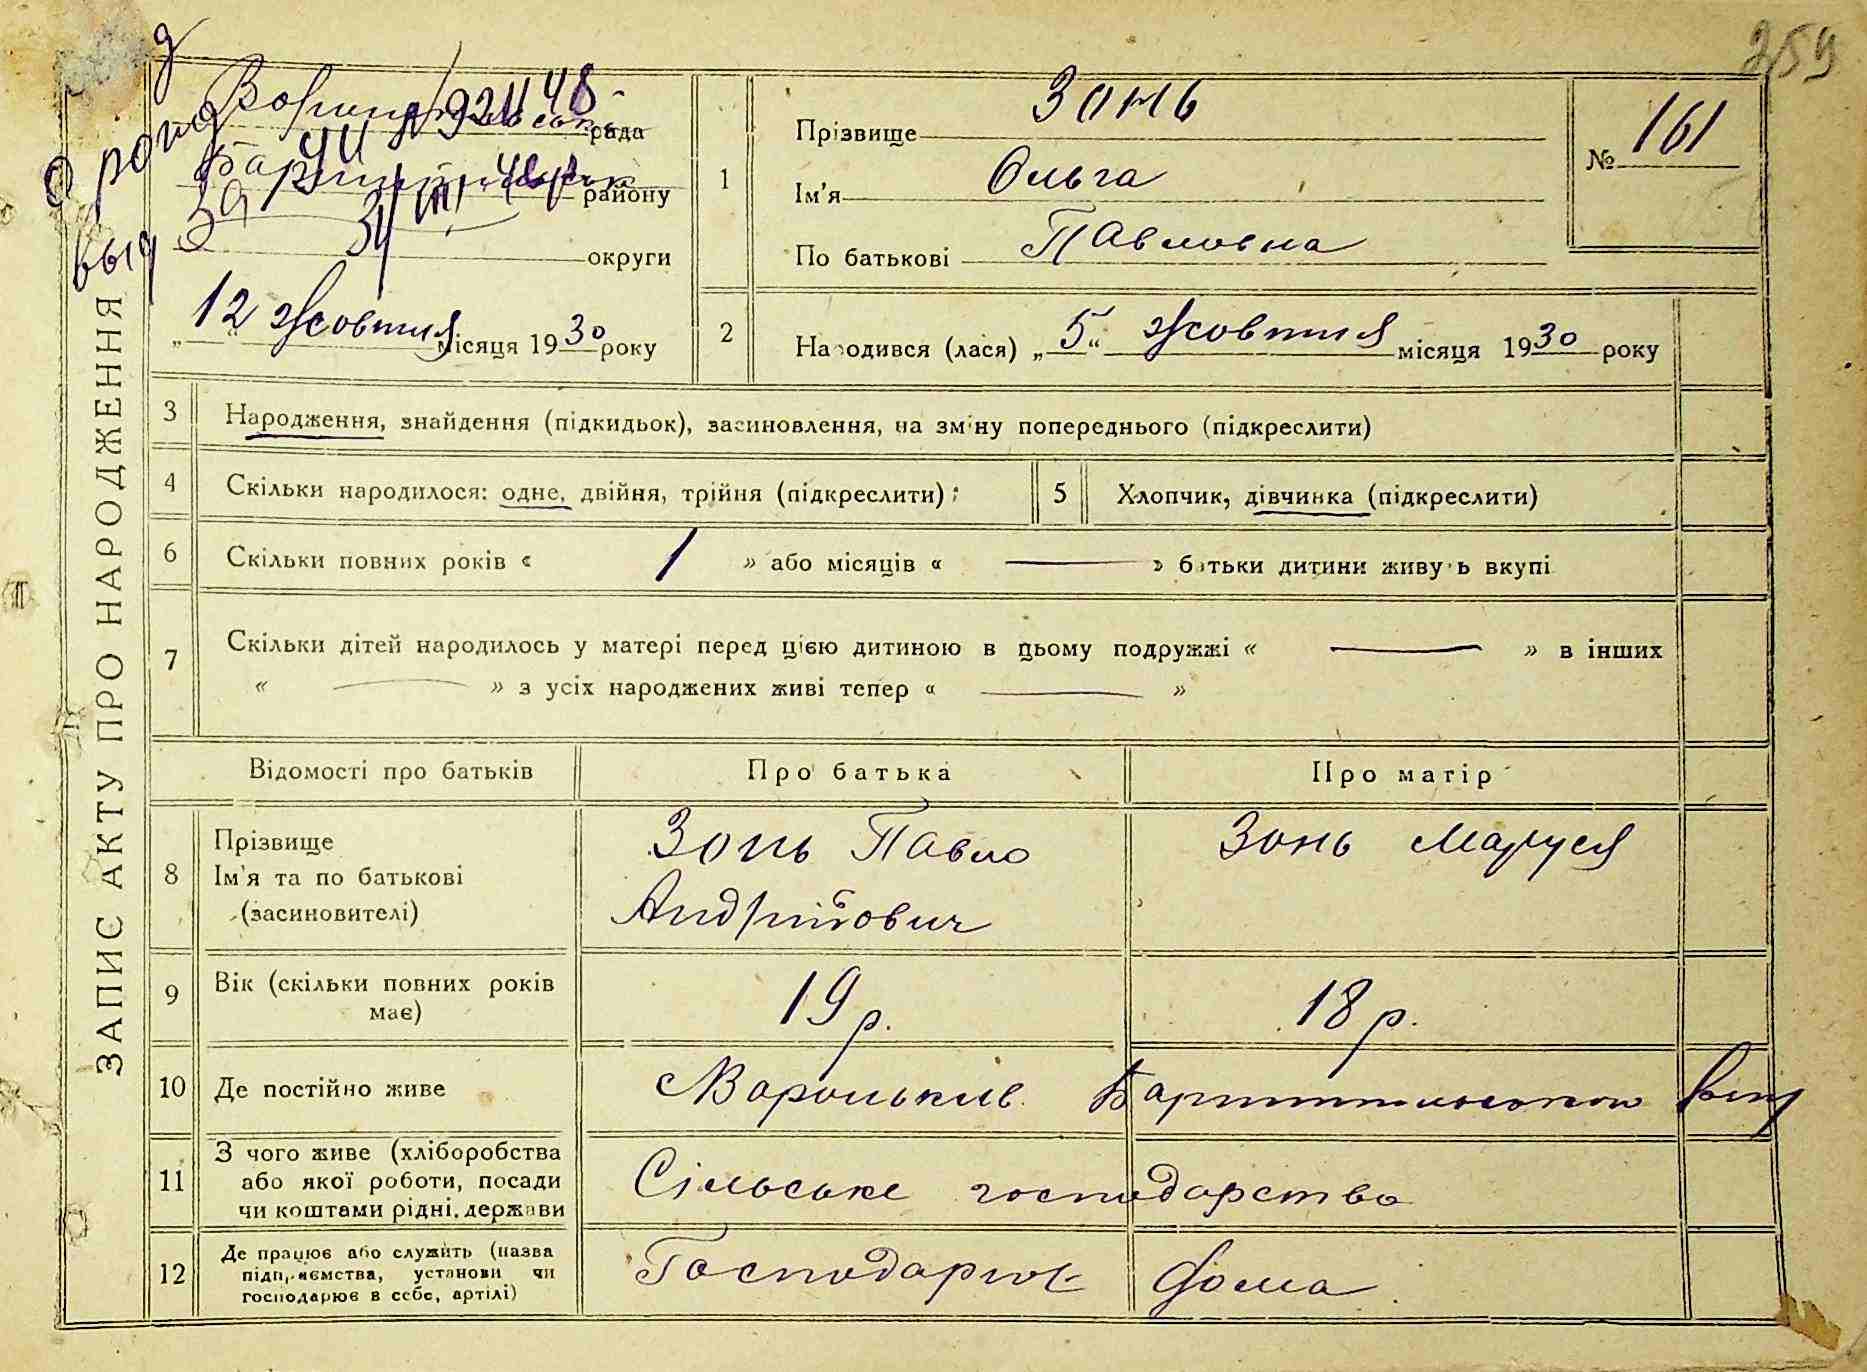 259
ЗАПИС АКТУ ПРО НАРОДЖЕННЯ
рада
району
округи
„12“ Жовтня місяця 1930 року
1
Прізвище Зонь
Ім'я Ольга
По батькові Павловна
№ 161
2
Народився (лася) „5“ Жовтня місяця 1930 року
3 Народження, знайдення (підкидьок), засиновлення, на зміну попереднього (підкреслити)
4 Скільки народилося: одне, двійня, трійня (підкреслити);
5 Хлопчик, дівчинка (підкреслити)
6 Скільки повних років « 1 » або місяців « — » батьки дитини живуть вкупі
7 Скільки дітей народилось у матері перед цією дитиною в цьому подружжі « — » в інших
« — » з усіх народжених живі тепер « — »
Відомості про батьків Про батька Про матір
8 Прізвище
Ім'я та по батькові
(засиновителі)
Зонь Павло
Андрійович
Зонь Маруся
9 Вік (скільки повних років
має)
19 р. 18 р.
10 Де постійно живе Вороньків
11 З чого живе (хліборобства
або якої роботи, посади
чи коштами рідні, держави
Сільське господарство
12 Де працює або служить (назва
підприємства, установи чи
господарює в себе, артілі)
Господарює дома